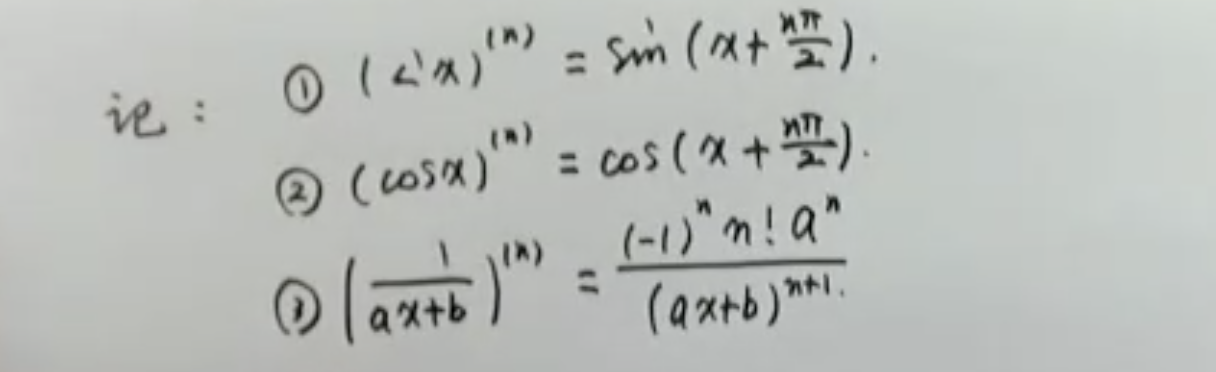 记: ① (sinx)^(n) = sin(x+nπ/2).
② (cosx)^(n) = cos(x+nπ/2).
③ (1/(ax+b))^(n) = (-1)^n n! a^n/(ax+b)^(n+1).